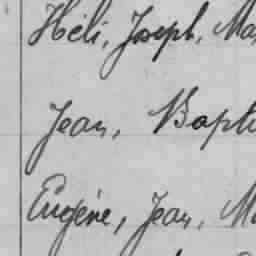 Héli, Joseph, Ma
Jean, Bapti
Eugène, Jean, M